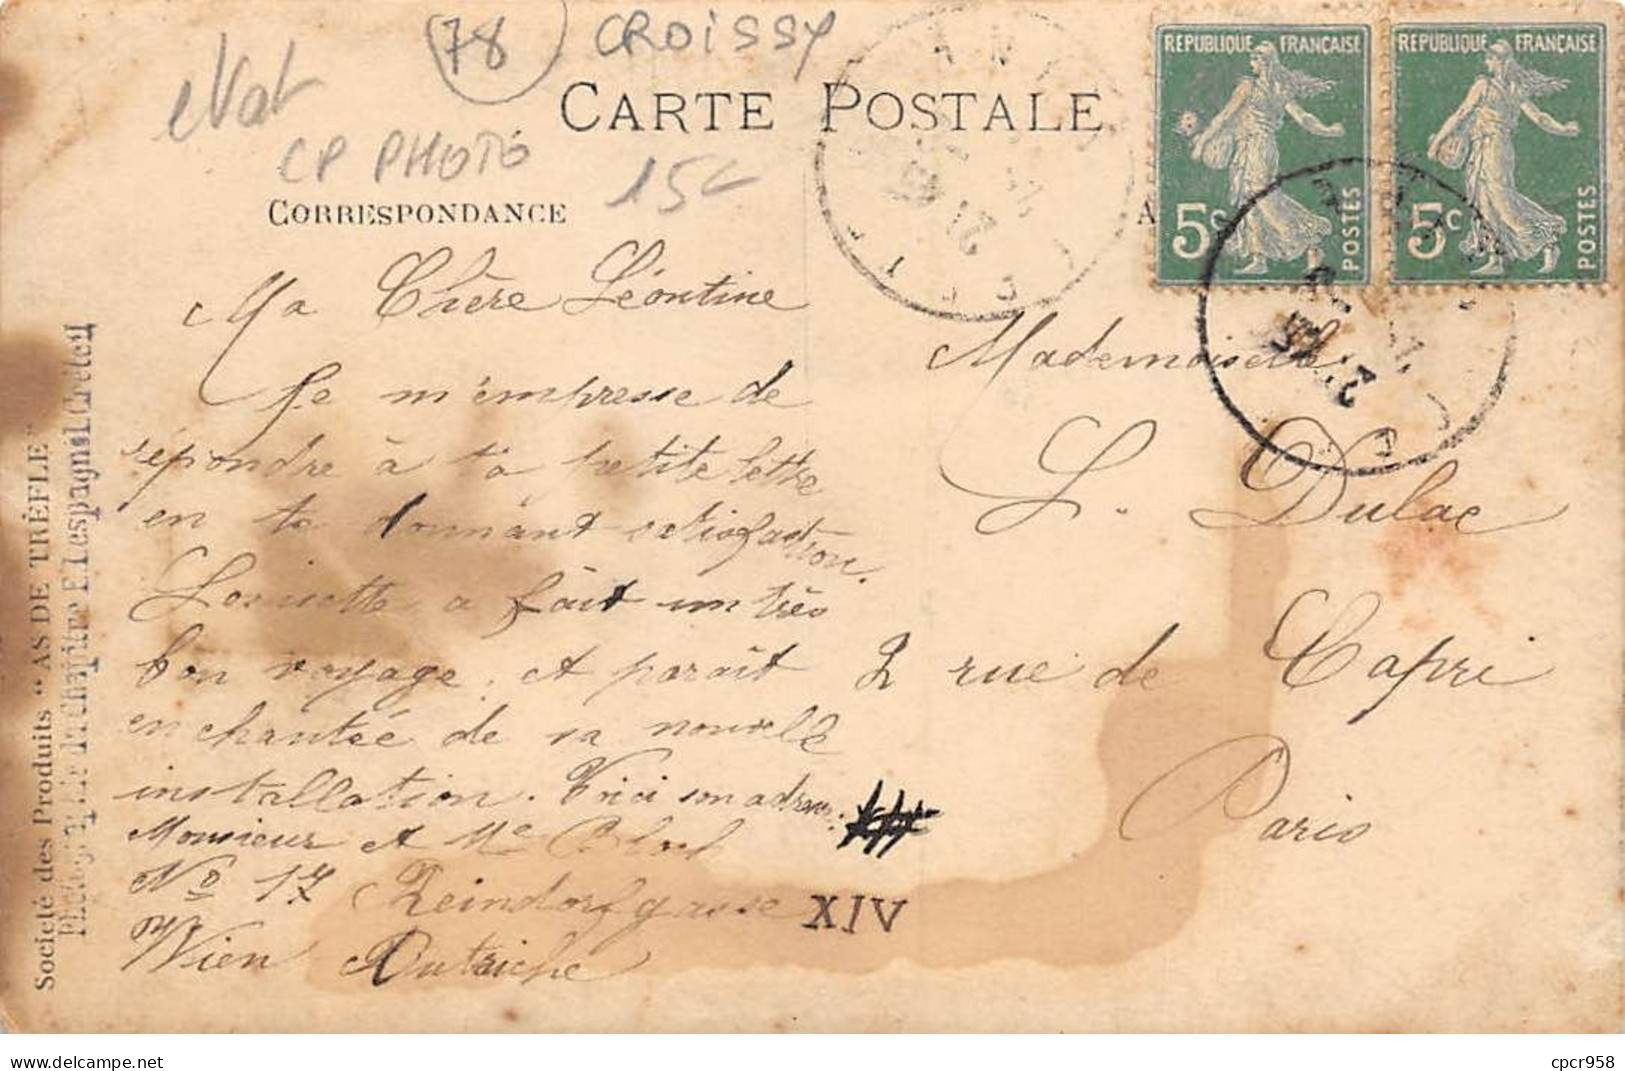 78 CROISSY
CP PHOTO
15
CARTE POSTALE
CORRESPONDANCE
REPUBLIQUE FRANÇAISE
5c POSTES
REPUBLIQUE FRANÇAISE
5c POSTES
Ma Chère Léontine
Je m'empresse de
répondre à ta petite lettre
en te donnant satisfaction.
a fait un très
bon voyage, et parait
enchantée de sa nouvelle
installation. Voici son adresse:
Monsieur et Me
No 17 Reindorfgasse XIV
Wien Autriche
Mademoiselle
L. Dulac
2 rue de Capri
Paris
Societé des Produits "AS DE TRÈFLE"
Lespagnol Créteil
cpcr958